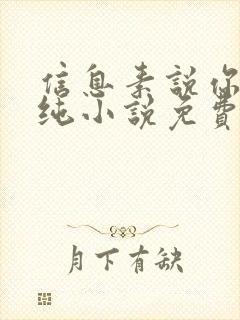 信息素說你
纯小說免費
月下有缺